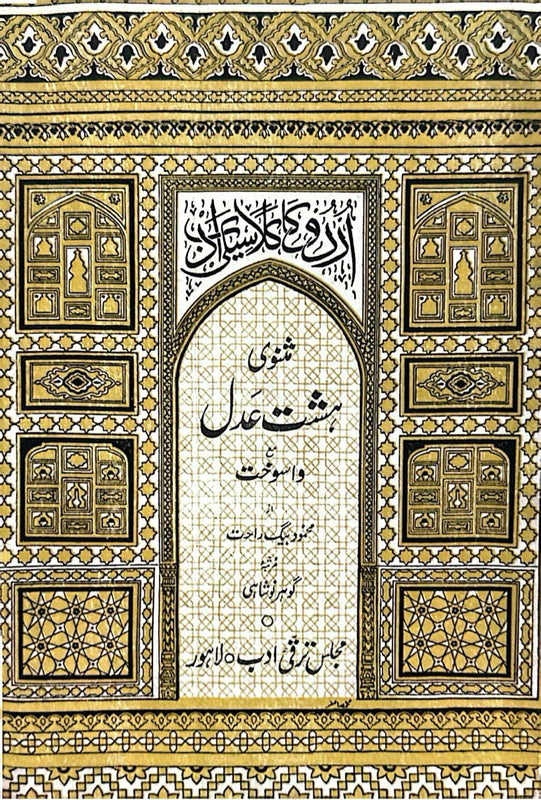 اُردُو کا کلاسیکی ادب
مثنوی
ہشت عَدل
مع
واسوخت
از
محمود بیگ راحت
مرتبہ
گوہر نوشاہی
مجلسِ ترقیِ ادب ○ لاہور